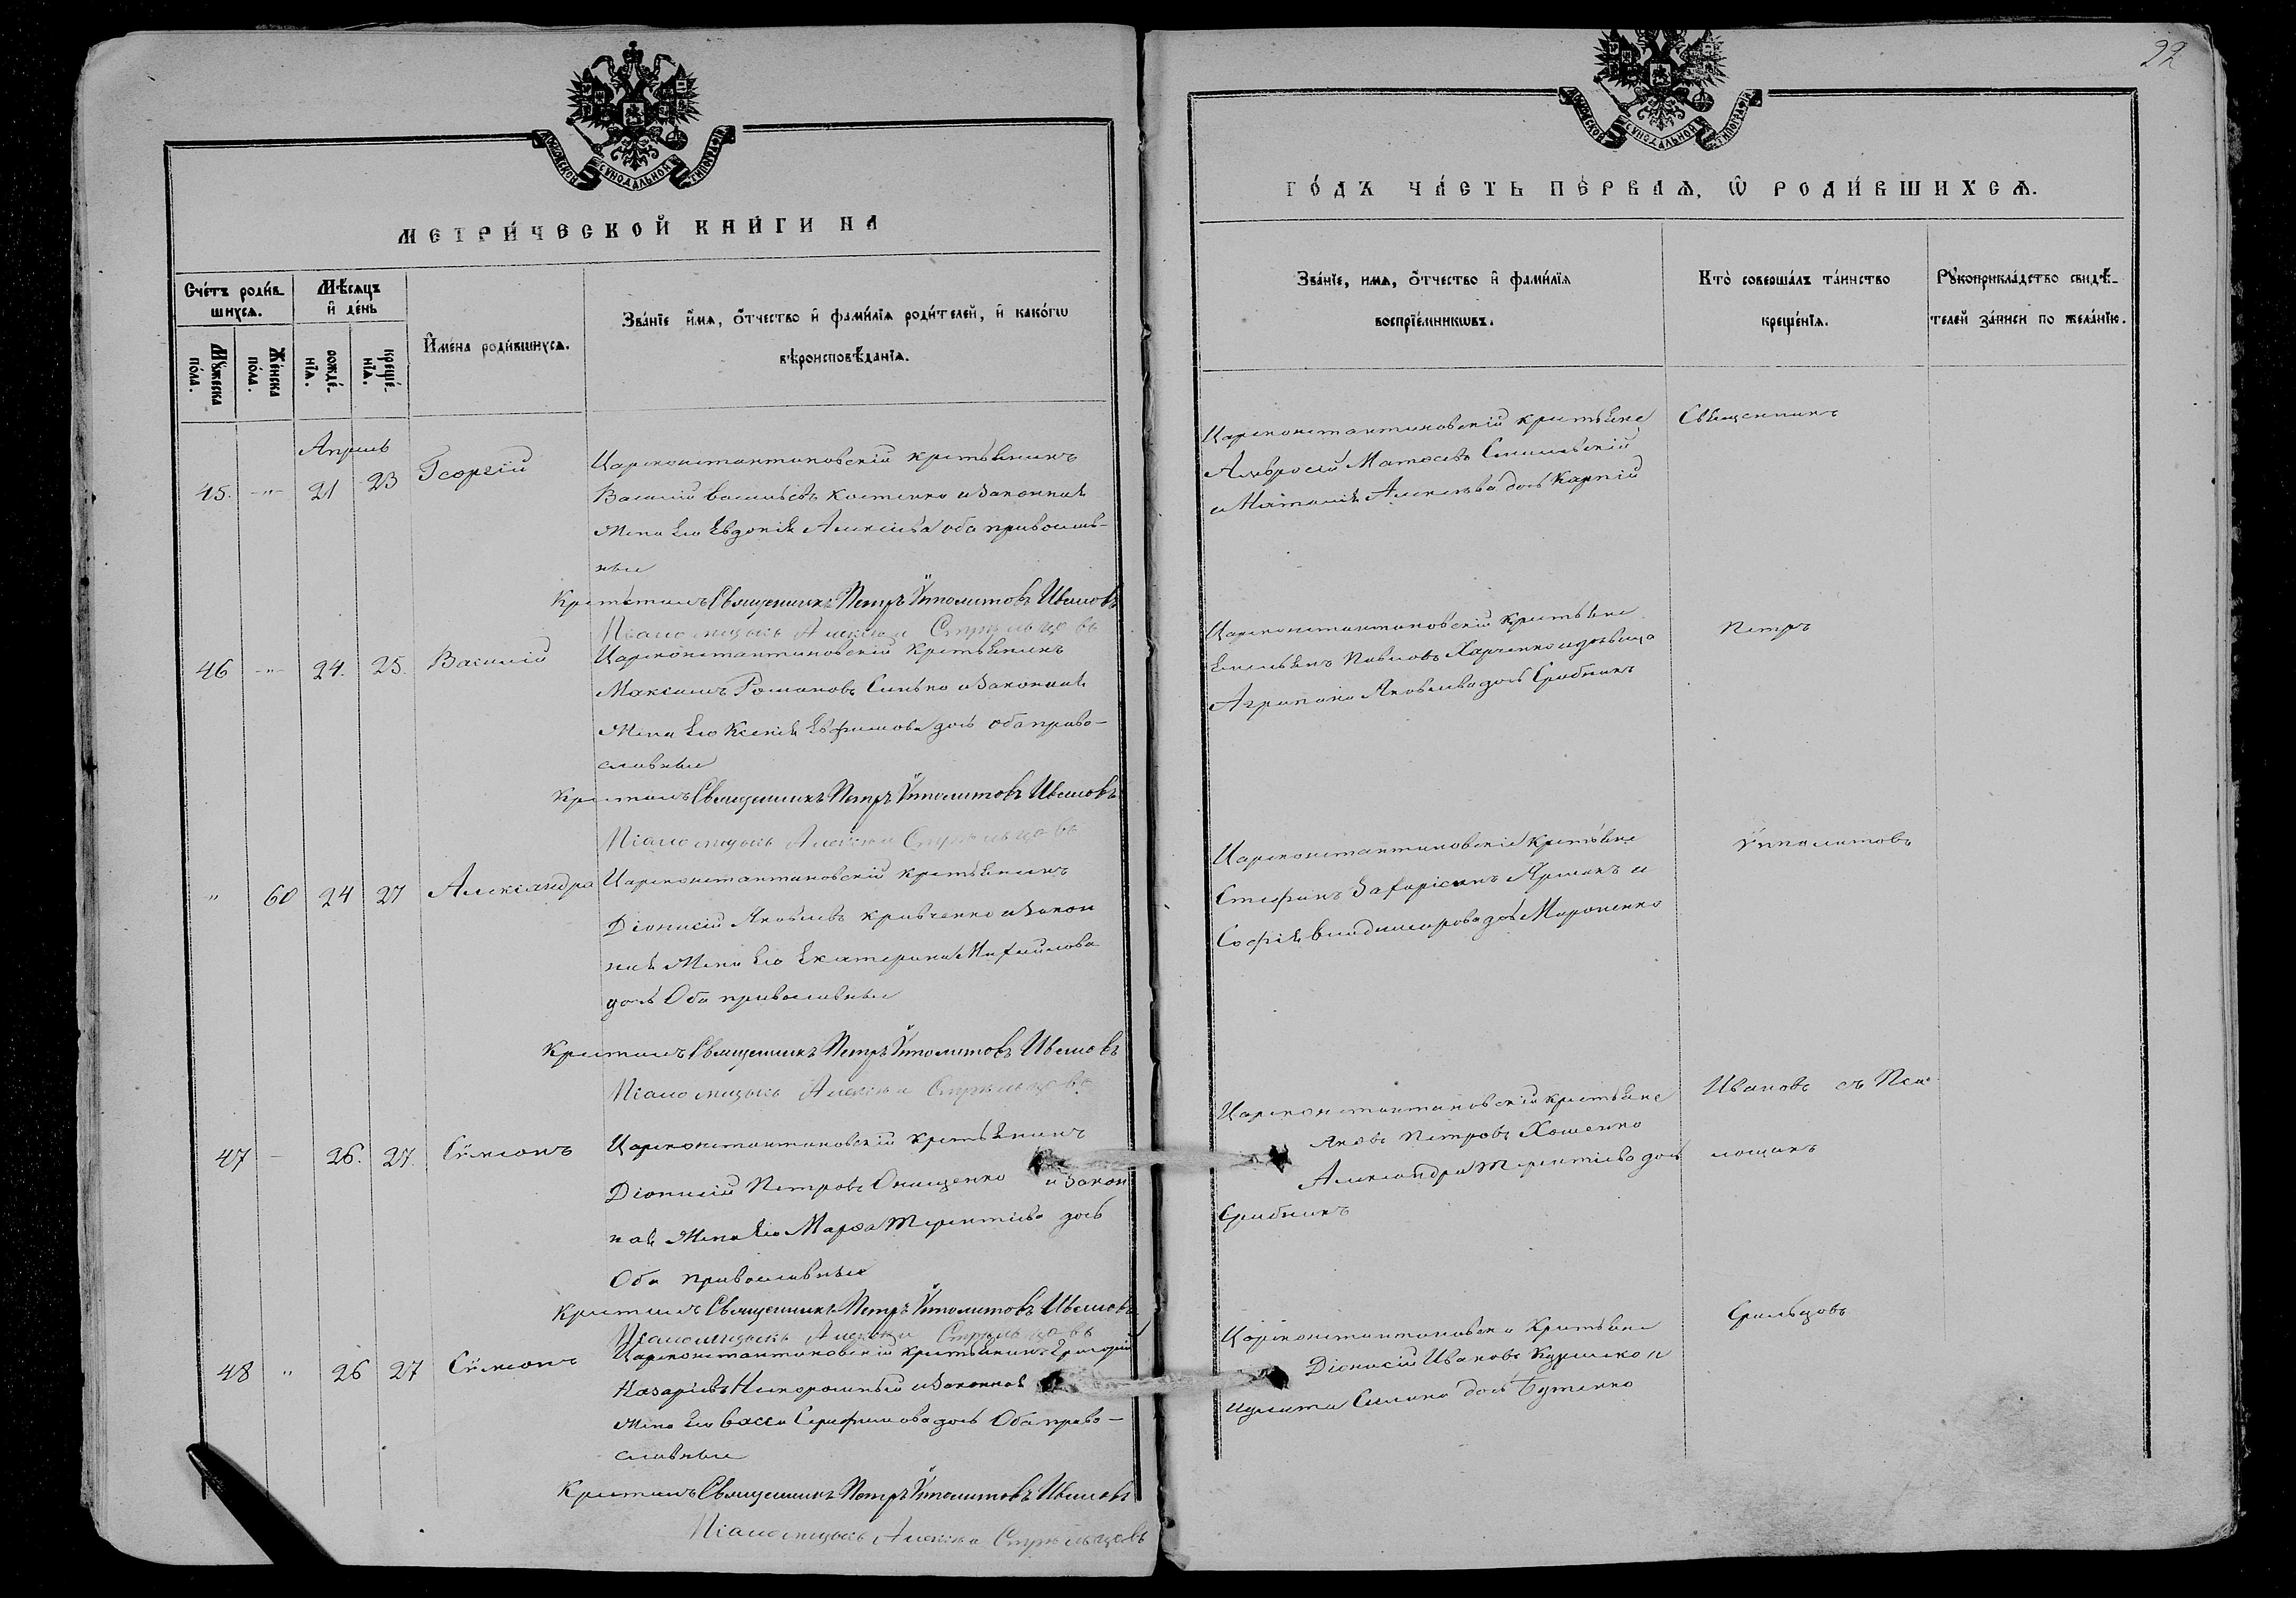 МОСКОВСКОЙ СѴНОДАЛЬНОЙ ТИПОГРАФІИ
МЕТРИ́ЧЕСКОЙ КНИ́ГИ НА
Сче́тъ роди́вшихсѧ.
Мѣ́сѧцъ и҆ де́нь
И҆мена̀ роди́вшихсѧ.
Зва́нїе и҆́мѧ, о҆́тчество и҆ фами́лїѧ роди́телей, и҆ како́гѡ
вѣроисповѣ́данїѧ.
Мꙋ́жеска по́ла.
Же́нска по́ла.
рожде́нїѧ.
креще́нїѧ.
Апрель
45. -"- 21 23 Георгій
Цареконстантиновскій крестьянинъ
Василій Васильевъ Костенко и законная
жена его Евдокія Алексіева оба православ-
ные
Крестилъ Священникъ Петръ Ѵпполитовъ Ивановъ
Псаломщикъ Алексѣй Стрѣльцовъ
46 -"- 24. 25. Василій
Цареконстантиновскій крестьянинъ
Максимъ Романовъ Синько и законная
жена его Ксенія Ефимова дочь оба право-
славные
Крестилъ Священникъ Петръ Ѵпполитовъ Ивановъ
Псаломщикъ Алексѣй Стрѣльцовъ
" 60 24 27 Александра
Цареконстантиновскій крестьянинъ
Діонисій Яковлевъ Кравченко и закон
ная жена его Екатерина Михаилова
дочь Оба православные
Крестилъ Священникъ Петръ Ѵпполитовъ Ивановъ
Псаломщикъ Алексѣй Стрѣльцовъ
47 - 26. 27. Сѵмеонъ
Цареконстантиновскій крестьянинъ
Діонисій Петровъ Онищенко и закон
ная жена его Марѳа Терентіева дочь
Оба православные
Крестилъ Священникъ Петръ Ѵпполитовъ Ивановъ
Псаломщикъ Алексѣй Стрѣльцовъ
48 " 26 27 Сѵмеонъ
Цареконстантиновскій крестьянинъ Григорій
Назаріевъ Нехорошный и законная
жена его Васса Серафимова дочь Оба право-
славные
Крестилъ Священникъ Петръ Ѵпполитовъ Ивановъ
Псаломщикъ Алексѣй Стрѣльцовъ
22
МОСКОВСКОЙ СѴНОДАЛЬНОЙ ТИПОГРАФІИ
ГО́ДЪ ЧА́СТЬ ПЕ́РВАѦ, Ѡ҆ РОДИ́ВШИХСѦ.
Зва́нїе, имѧ, о҆́тчество и҆ фами́лїѧ
воспрїе́мникѡвъ.
Кто̀ соверша́лъ та́инство
креще́нїѧ.
Рꙋкоприкла́дство свидѣ́-
телей за́писи по жела́нїю.
Цареконстантиновскій крестьяне
Амвросій Матѳеевъ
и Наталія Алексѣева дочь Карпій
Священникъ
Цареконстантиновскій крестьяне
Емельянъ Павловъ Харченко и девица
Агрипина Яковлева дочь Срибникъ
Петръ
Цареконстантиновскіе крестьяне
Стефанъ Захаріевъ Ярмакъ и
Софія Владимирова дочь Мироненко
Ѵпполитовъ
Цареконстантиновскій крестьяне
Яковъ Петровъ Хоменко
Александра Терентіева дочь
Срибникъ
Ивановъ съ Пса
ломщикъ
Цареконстантиновски Крестьяне
Діонисій Ивановъ и
Иулита Силина дочь Бутенко
Срельцовъ